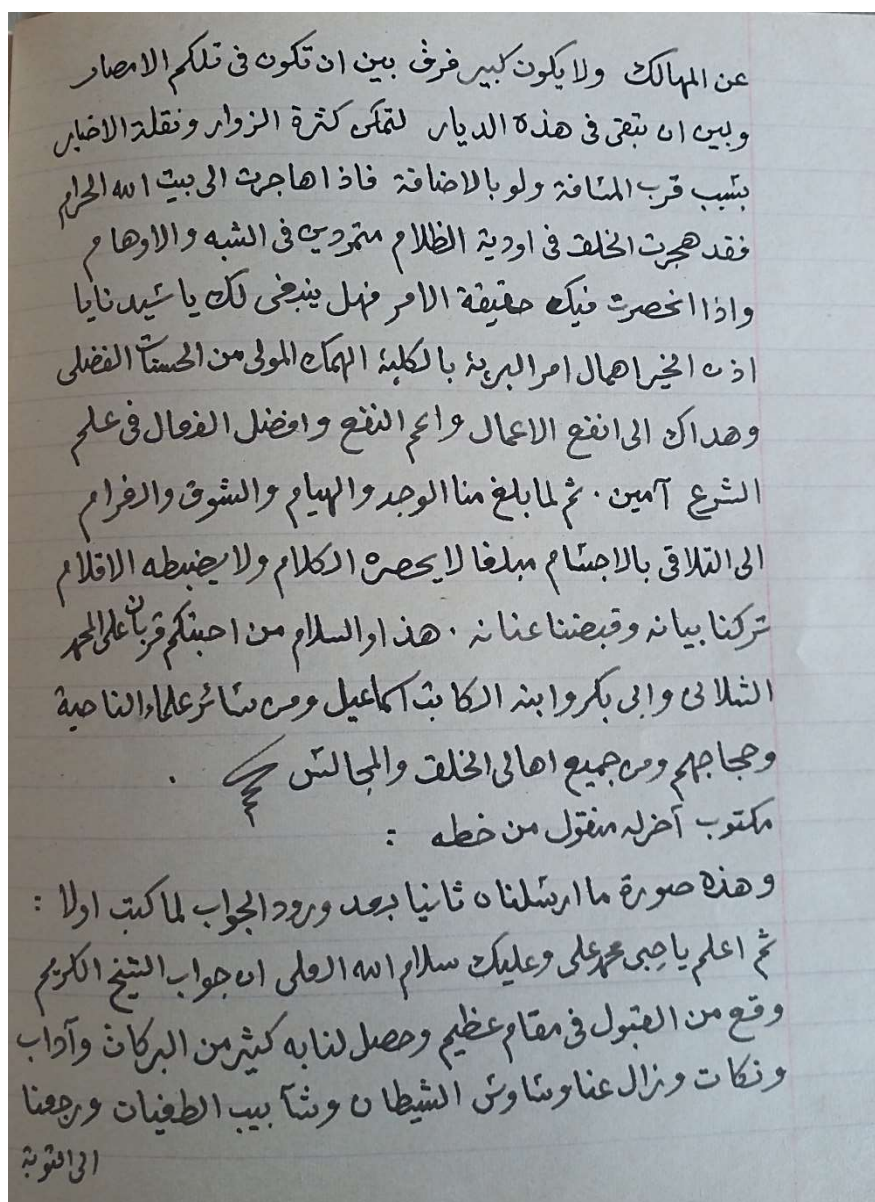 عن المهالك ولا يكون كبير فرق بين ان تكون فى تلكم الامصار
وبين ان تبقى فى هذه الديار لتمكن كثرة الزوار ونقلة الاخبار
بسبب قرب المسافة ولو بالاضافة فاذا هاجرت الى بيت الله الحرام
فقد هجرت الخلق فى اودية الظلام متمردين فى الشبه والاوهام
واذا انحصرت فيك حقيقة الامر فهل ينبغى لك يا سيدنا يا
اذن الخير اهمال امر البرية بالكلية الهمك المولى من الحسنات الفضلى
وهداك الى انفع الاعمال واعم النفع وافضل الفعال فى علم
الشرع آمين . ثم لما بلغ منا الوجد والهيام والشوق والغرام
الى التلاقى بالاجسام مبلغا لا يحصره الكلام ولا يضبطه الاقلام
تركنا بيانه وقبضنا عنانه . هذا والسلام من احبتكم قربان على المحمد
الشلالى وابى بكر وابنه الكاتب اسماعيل ومن سائر علماء الناحية
وحجاجهم ومن جميع اهالى الخلق والمجالس .
مكتوب آخر له منقول من خطه :
وهذه صورة ما ارسلناه ثانيا بعد ورود الجواب لما كتب اولا :
ثم اعلم يا حبى محمد على وعليك سلام الله العلى ان جواب الشيخ الكريم
وقع من القبول فى مقام عظيم وحصل لنا به كثير من البركات وآداب
ونكات وزال عنا وساوس الشيطان وشآبيب الطغيان ورجعنا
الى التوبة